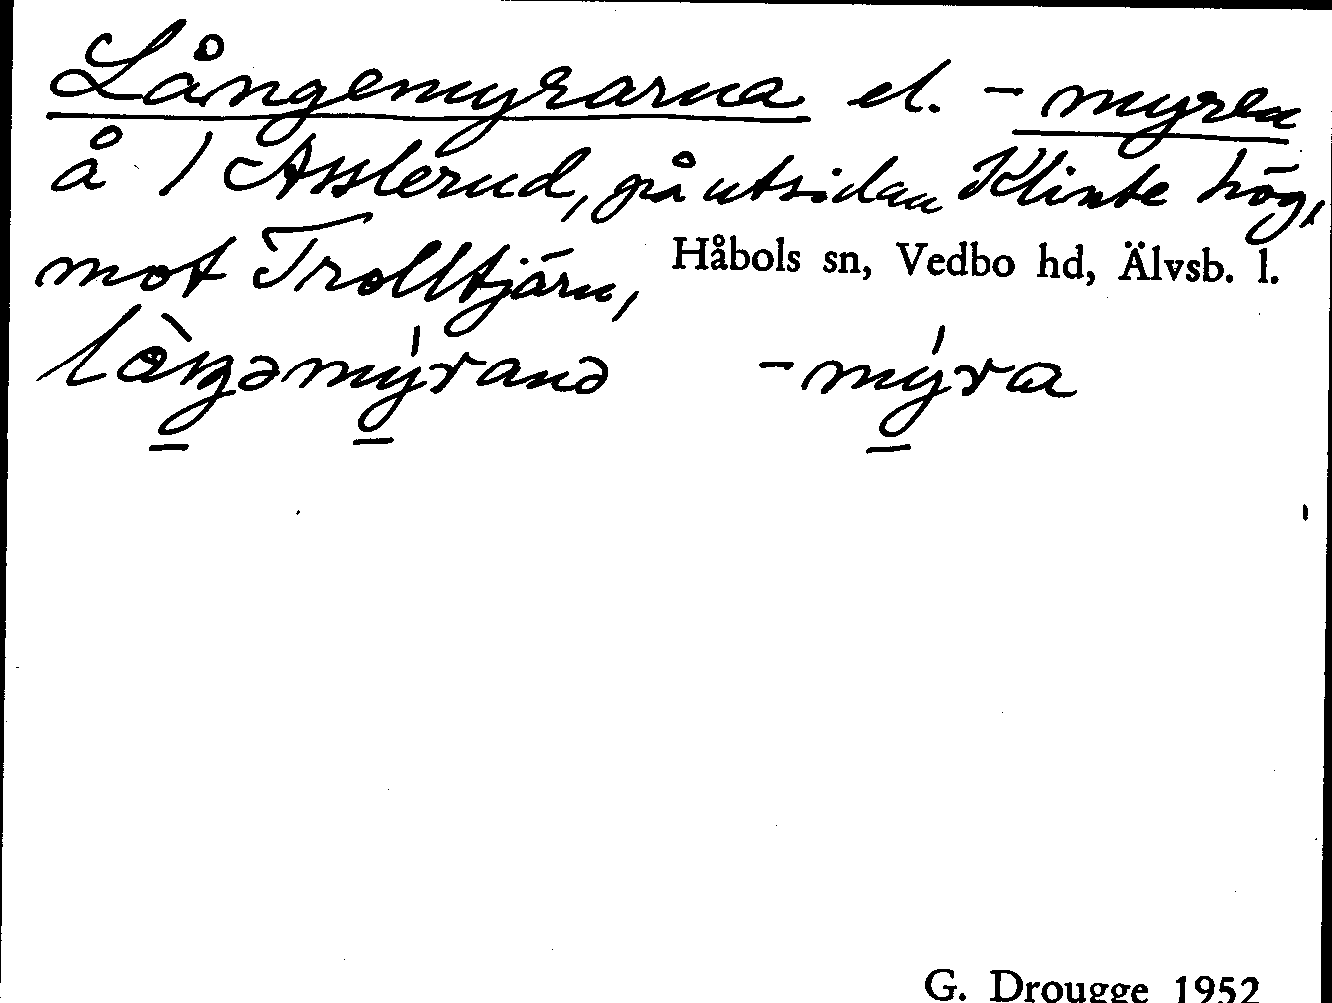 Långemyrarna el. - myren
å 1 Asslerud, på utsidan Klinte hög,
mot Trolltjärn,
Håbols sn, Vedbo hd, Älvsb. l.
-mýra
G. Drougge 1952